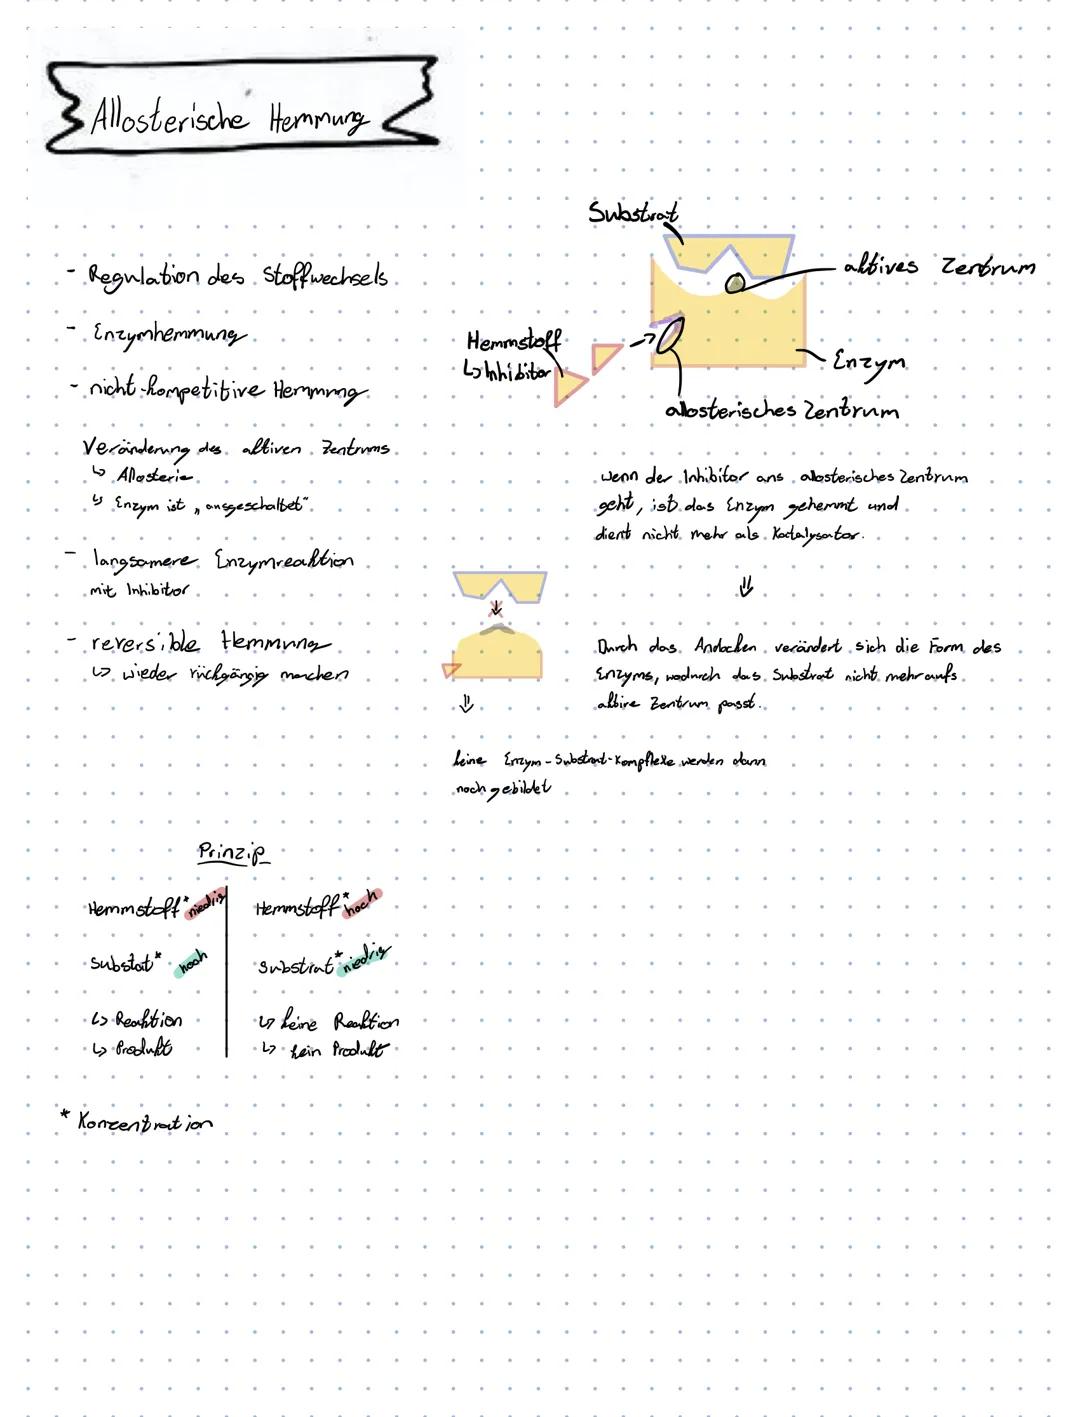 Allosterische Hemmung
- Regulation des Stoffwechsels
- Enzymhemmung
- nicht-kompetitive Hemmung
Veränderung des aktiven Zentrums
↳ Allosterie
↳ Enzym ist „ausgeschaltet"
- langsamere Enzymreaktion
mit Inhibitor
- reversible Hemmung
↳ wieder rückgängig machen
Substrat
aktives Zentrum
Hemmstoff
↳ Inhibitor
Enzym
allosterisches Zentrum
wenn der Inhibitor ans allosterisches Zentrum
geht, ist das Enzym gehemmt und
dient nicht mehr als Katalysator.
⇓
Durch das Andocken verändert sich die Form des
Enzyms, wodurch das Substrat nicht mehr aufs
aktive Zentrum passt.
⇓
keine Enzym-Substrat-Kompflexe werden dann
noch gebildet
Prinzip
Hemmstoff* niedrig
Substat* hoch
↳ Reaktion
↳ Produkt
Hemmstoff* hoch
Substrat* niedrig
↳ keine Reaktion
↳ kein Produkt
* Konzentration